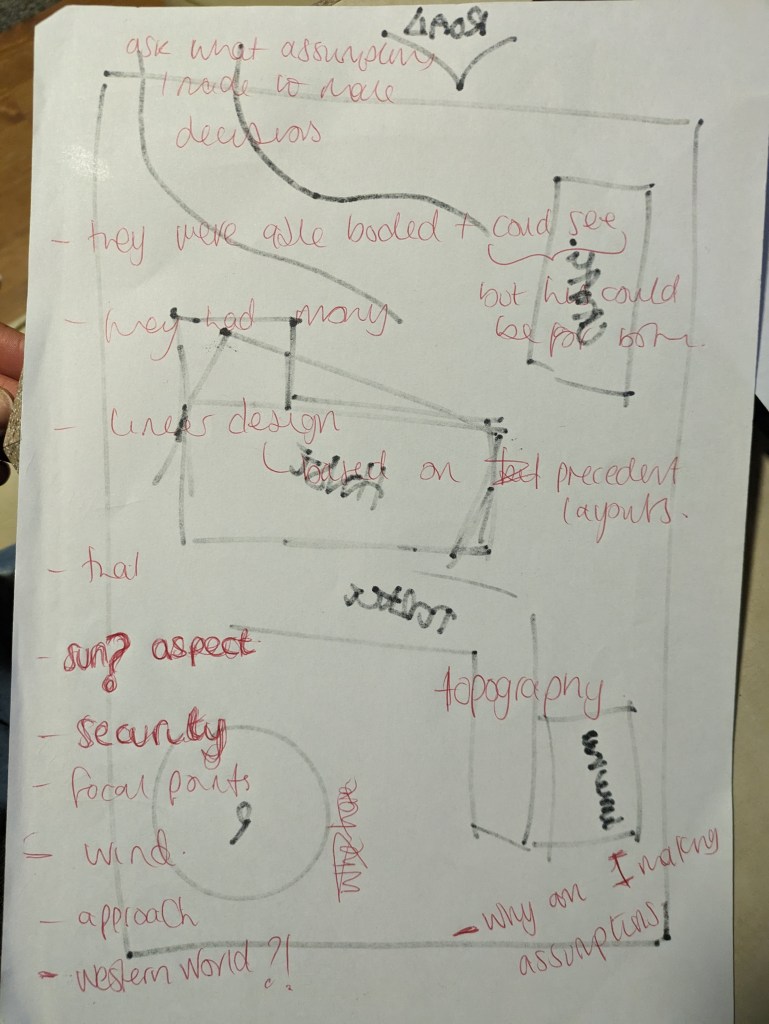 ROAD
ask what assumptions
I made to make
decisions
- they were able bodied + could see
but this could
be for both.
- they had many
- linear design
based on precedent
layouts.
- that
- sun? aspect
topography
- security
- focal points
- wind
- approach
- why am I making
assumptions
- western world?!